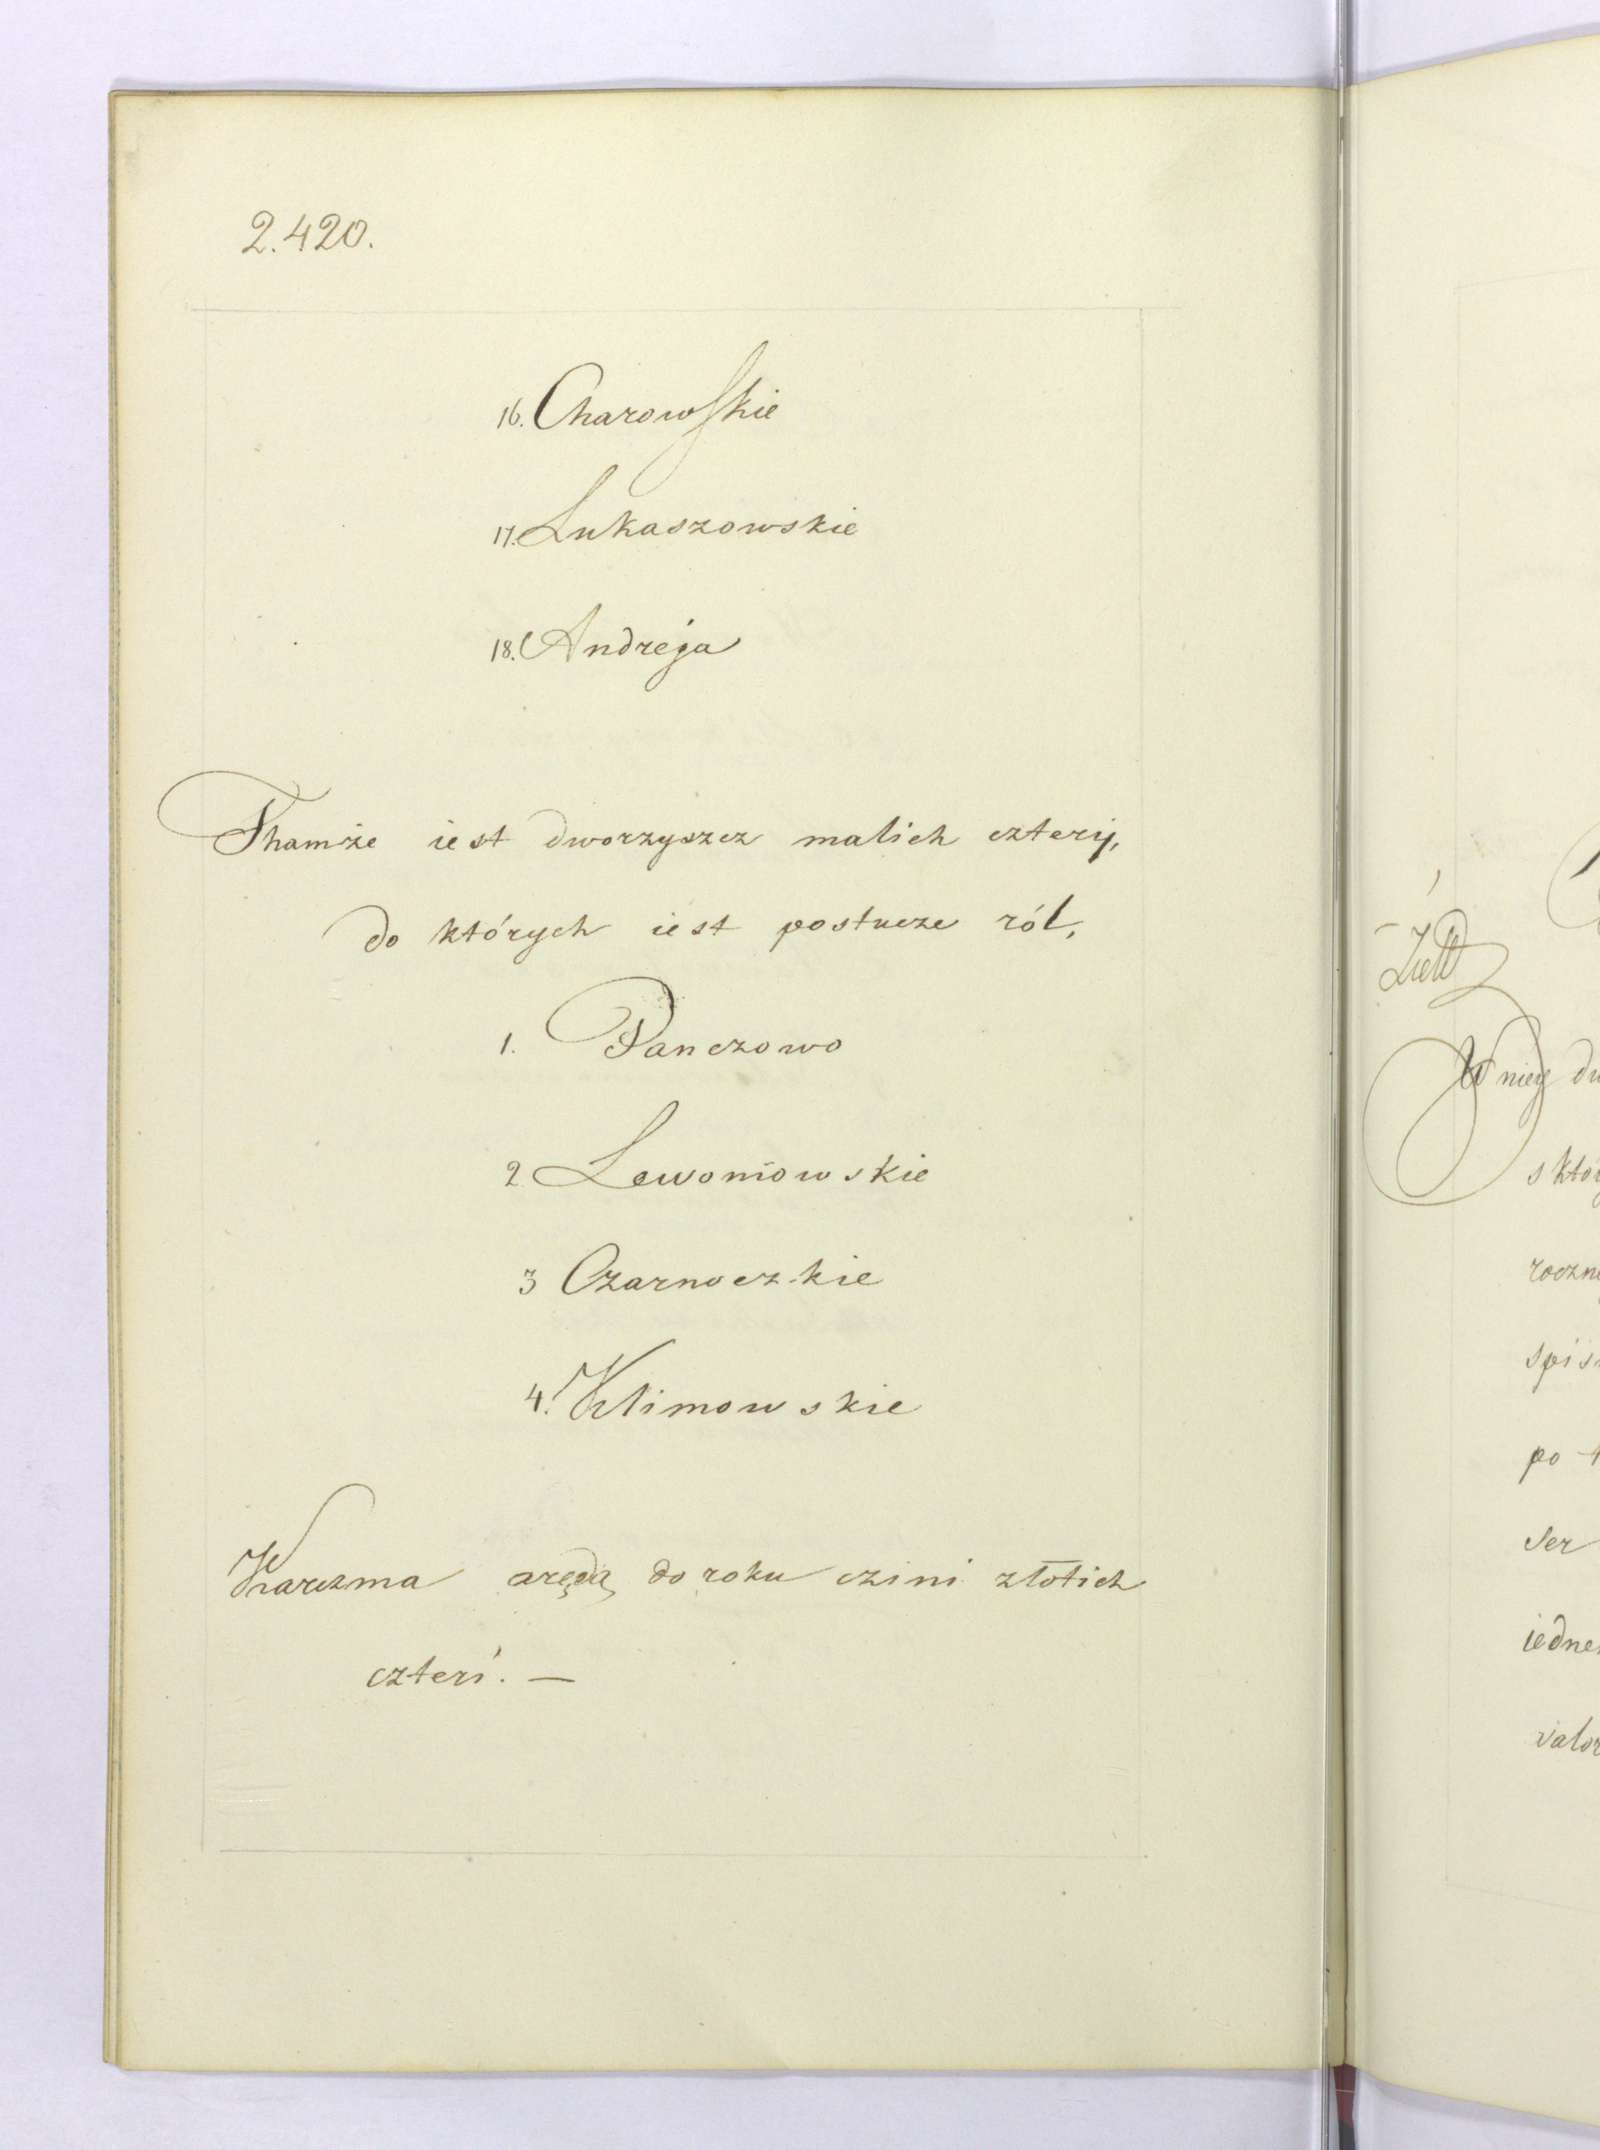 2.420.
16. Charowskie
17. Lukaszowskie
18. Andreja
Thamże iest dworzyszcz malich cztery,
do których iest postucze ról,
1. Panczowo
2 Lewoniowskie
3 Czarnoczkie
4. Klimowskie
Karczma arędą do roku czini złotich
czteri. —
W niey
roczn
po
ser
iedne
valor